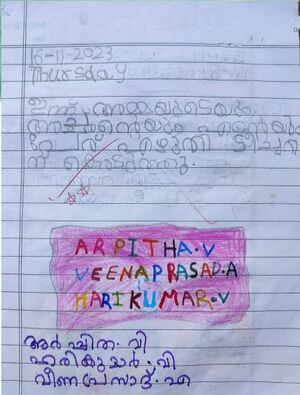 16-11-2023
Thursday
ഇന്ന് അമ്മയുടെയും
അച്ഛന്റെയും എന്റെയും
പേര് എഴുതി ടീച്ചറി
ന് കൊടുത്തു.
ARPITHA.V
VEENAPRASAD.A
HARIKUMAR.V
അർപ്പിത. വി
ഹരികുമാർ. വി
വീണപ്രസാദ്. എ